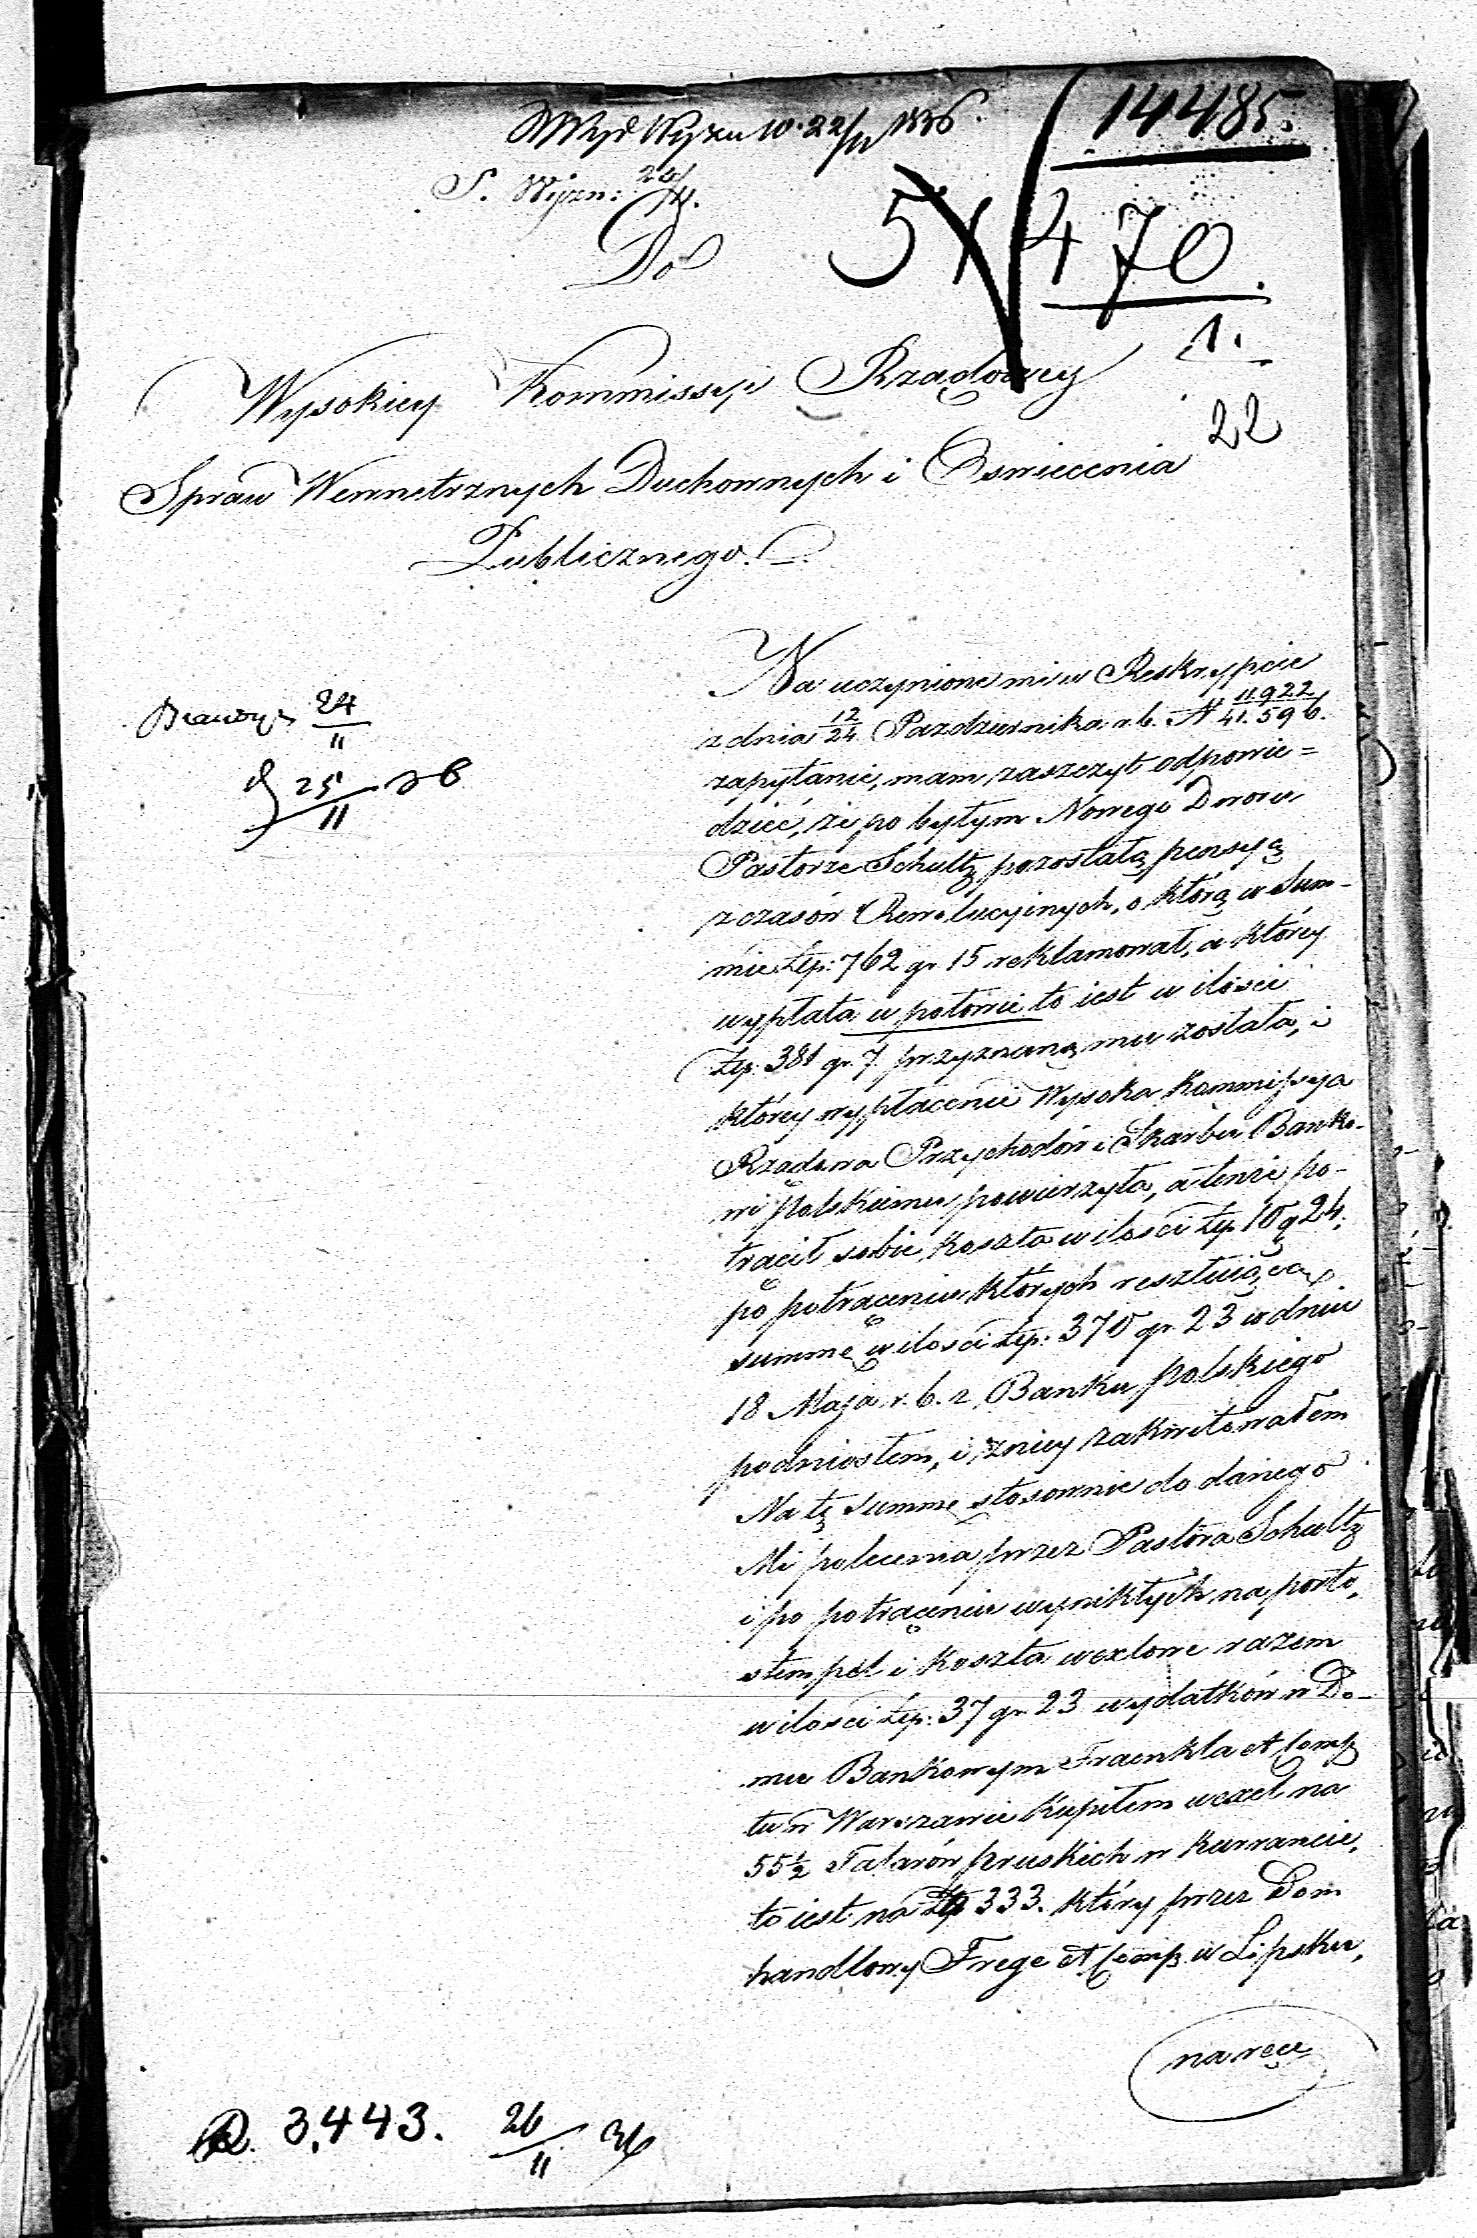 Wyd Wyzn 10. 22/11 1836.
14485.
S. Wyzn: 24/11.
5 470.
1.
22
Do
Wysokiey Kommissyi Rządowey
Spraw Wewnetrznych Duchownych i Oswiecenia
Publicznego.
24/11
25/11 36
Na uczynione mi w Reskrypcie
z dnia 12/24 Pazdziernika r. b. N 11922/41.596.
zapytanie, mam zaszczyt odpowie=
dzieć, że po byłym Nowego Dworu
Pastorze Schultz pozostałą pensyą
z czasów Rewolucyinych, o którą w Sum-
mie Złp: 762 gr 15 reklamował, a którey
wypłata w połowie to iest w ilości
Złp. 381 gr. 7. przyznaną mu została, i
którey wypłacenie Wysoka Kommissya
Rządowa Przychodów i Skarbu Banko-
wi Polskiemu powierzyła, a tenże po-
trącił sobie koszta w ilości Złp 10 g 24.
po potrąceniu których resztuiącą
summę w ilości Złp: 370 gr. 23 w dniu
18 Maja r. b. z Banku Polskiego
podniosłem, i zniey zakwitowałem
Na tę Summę stosownie do danego
Mi polecenia przez Pastora Schultz
i po potrąceniu wynikłych na porto,
stempel i koszta wexlowe razem
w ilości Złp: 37 gr 23 wydatków w Do-
mu Bankowym Fraenkla et Comp
tu w Warszawie kupiłem wexel na
55 1/2 Talarów pruskich w kurrancie,
to iest na Złp 333. który przez Dom
handlowy Frege et Comp. w Lipsku,
na ręce
R. 3,443. 26/11 36